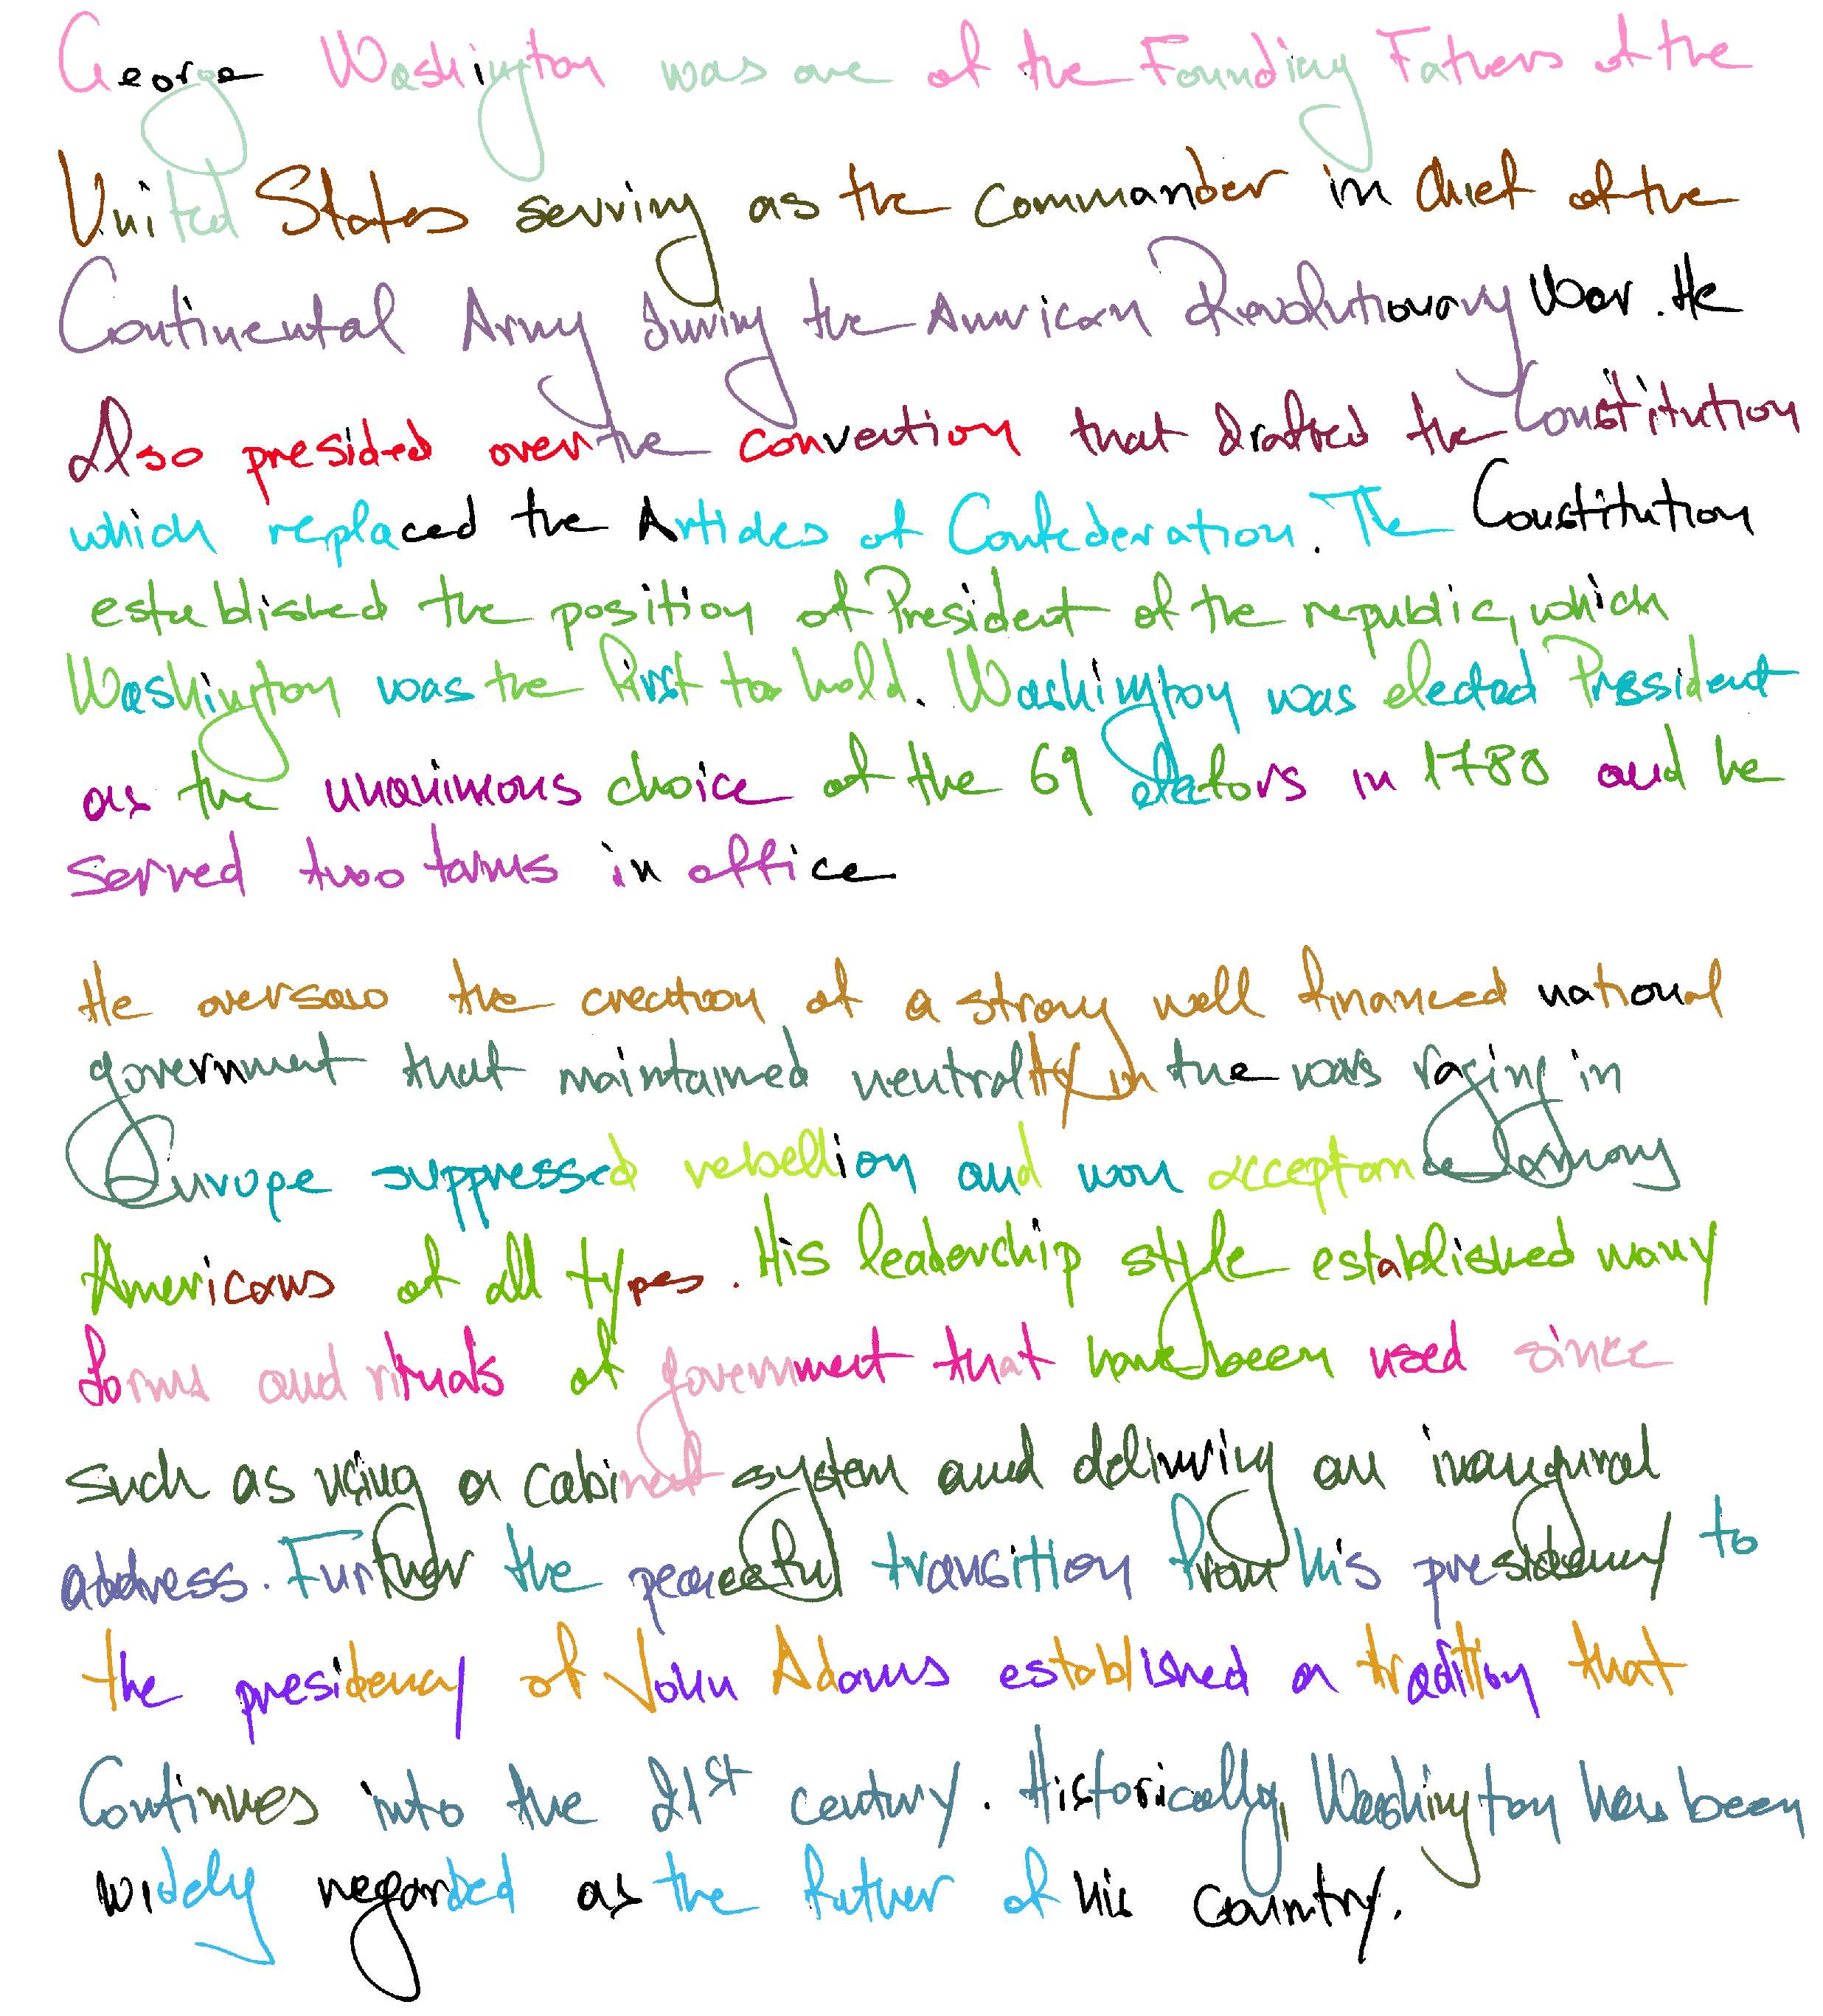 George Washington was one of the Founding Fathers of the
United States serving as the Commander in Chief of the
Continental Army during the American Revolutionary War. He
Also presided over the convention that drafted the Constitution
which replaced the Articles of Confederation. The Constitution
established the position of President of the republic, which
Washington was the first to hold. Washington was elected President
as the unanimous choice of the 69 electors in 1788 and he
served two terms in office
He oversaw the creation of a strong well financed national
government that maintained neutrality in the wars raging in
Europe suppressed rebellion and won acceptance among
Americans of all types. His leadership style established many
forms and rituals of government that have been used since
such as using a cabinet system and delivering an inaugural
address. Further the peaceful transition from his presidency to
the presidency of John Adams established a tradition that
Continues into the 21st century. Historically, Washington has been
widely regarded as the father of his country.